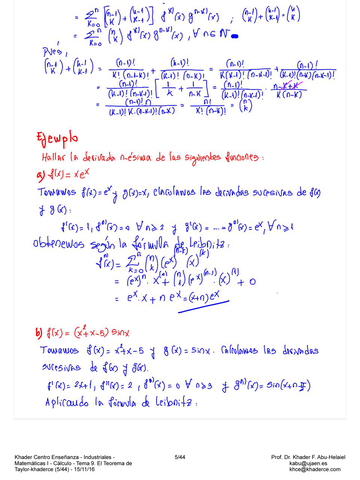 = Σ_{k=0}^{n} [(n-1 k) + (n-1 k-1)] f^{k)}(x) g^{n-k)}(x) ; (n-1 k) + (n-1 k-1) = (n k)
= Σ_{k=0}^{n} (n k) f^{k)}(x) g^{n-k)}(x), ∀ n∈N
pues,
(n-1 k) + (n-1 k-1) = (n-1)!/(k!(n-1-k)!) + (n-1)!/((k-1)!(n-k)!) = (n-1)!/(k(k-1)!(n-k-1)!) + (n-1)!/((k-1)!(n-k)(n-k-1)!)
= (n-1)!/((k-1)!(n-k-1)!) [1/k + 1/(n-k)] = (n-1)!/((k-1)!(n-k-1)!) · (n-k+k)/(k(n-k))
= (n-1)! n/((k-1)! k (n-k-1)!(n-k)) = n!/(k!(n-k)!) = (n k)
Ejemplo
Hallar la derivada n-ésima de las siguientes funciones:
a) f(x)=xe^x
Tomamos f(x)=e^x y g(x)=x, calculamos las derivadas sucesivas de f(x)
y g(x):
f'(x)=1, f^{n)}(x)=0 ∀ n≥2 y g'(x)=...=g^{n)}(x)=e^x, ∀ n≥1
obtenemos según la fórmula de Leibnitz:
f^{n)}(x) = Σ_{k=0}^{n} (n k) (e^x)^{(n-k)} (x)^{(k)}
= (e^x)^{n} · x^{(0)} + (n 1) (e^x)^{(n-1)} · (x)^{(1)} + 0
= e^x · x + n e^x = (x+n) e^x
b) f(x) = (x²+x-5) sinx
Tomamos f(x) = x²+x-5 y g(x) = sinx. Calculamos las derivadas
sucesivas de f(x) y g(x).
f'(x) = 2x+1, f''(x) = 2, f^{n)}(x) = 0 ∀ n≥3 y g^{n)}(x) = sin(x+n π/2)
Aplicando la fórmula de Leibnitz:
Khader Centro Enseñanza - Industriales -
Matemáticas I - Cálculo - Tema 9. El Teorema de
Taylor-khaderce (5/44) - 15/11/16
5/44
Prof. Dr. Khader F. Abu-Helaiel
kabu@ujaen.es
khce@khaderce.com